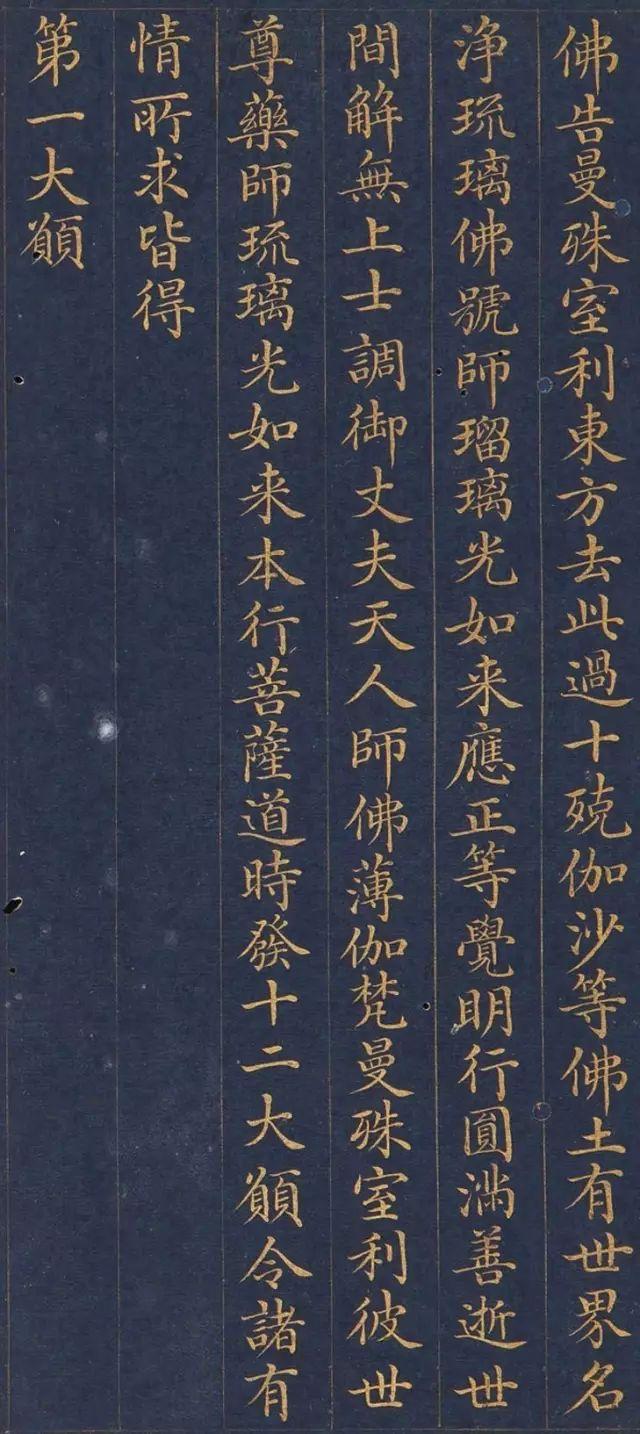 佛告曼殊室利東方去此過十殑伽沙等佛土有世界名
淨琉璃佛號師瑠璃光如来應正等覺明行圎滿善逝世
間解無上士調御丈夫天人師佛薄伽梵曼殊室利彼世
尊藥師琉璃光如来本行菩薩道時發十二大願令諸有
情所求皆得
第一大願